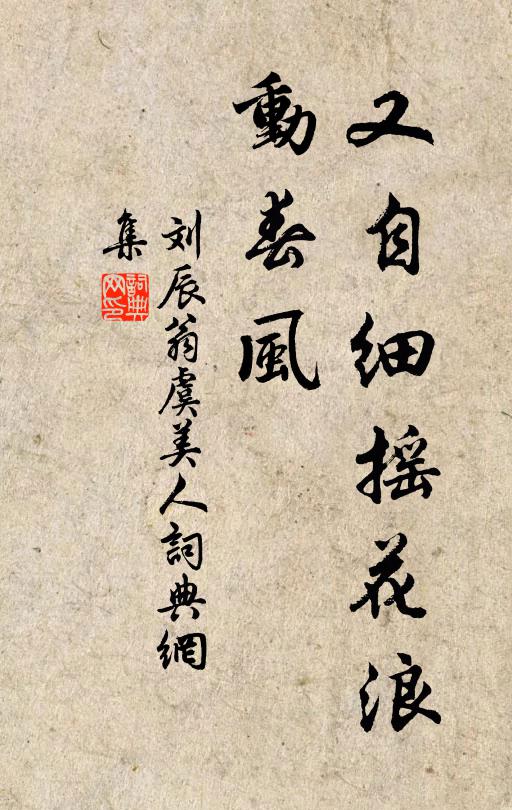 又自细摇花浪
動春風
刘辰翁虞美人詞典網
集
詞典网印